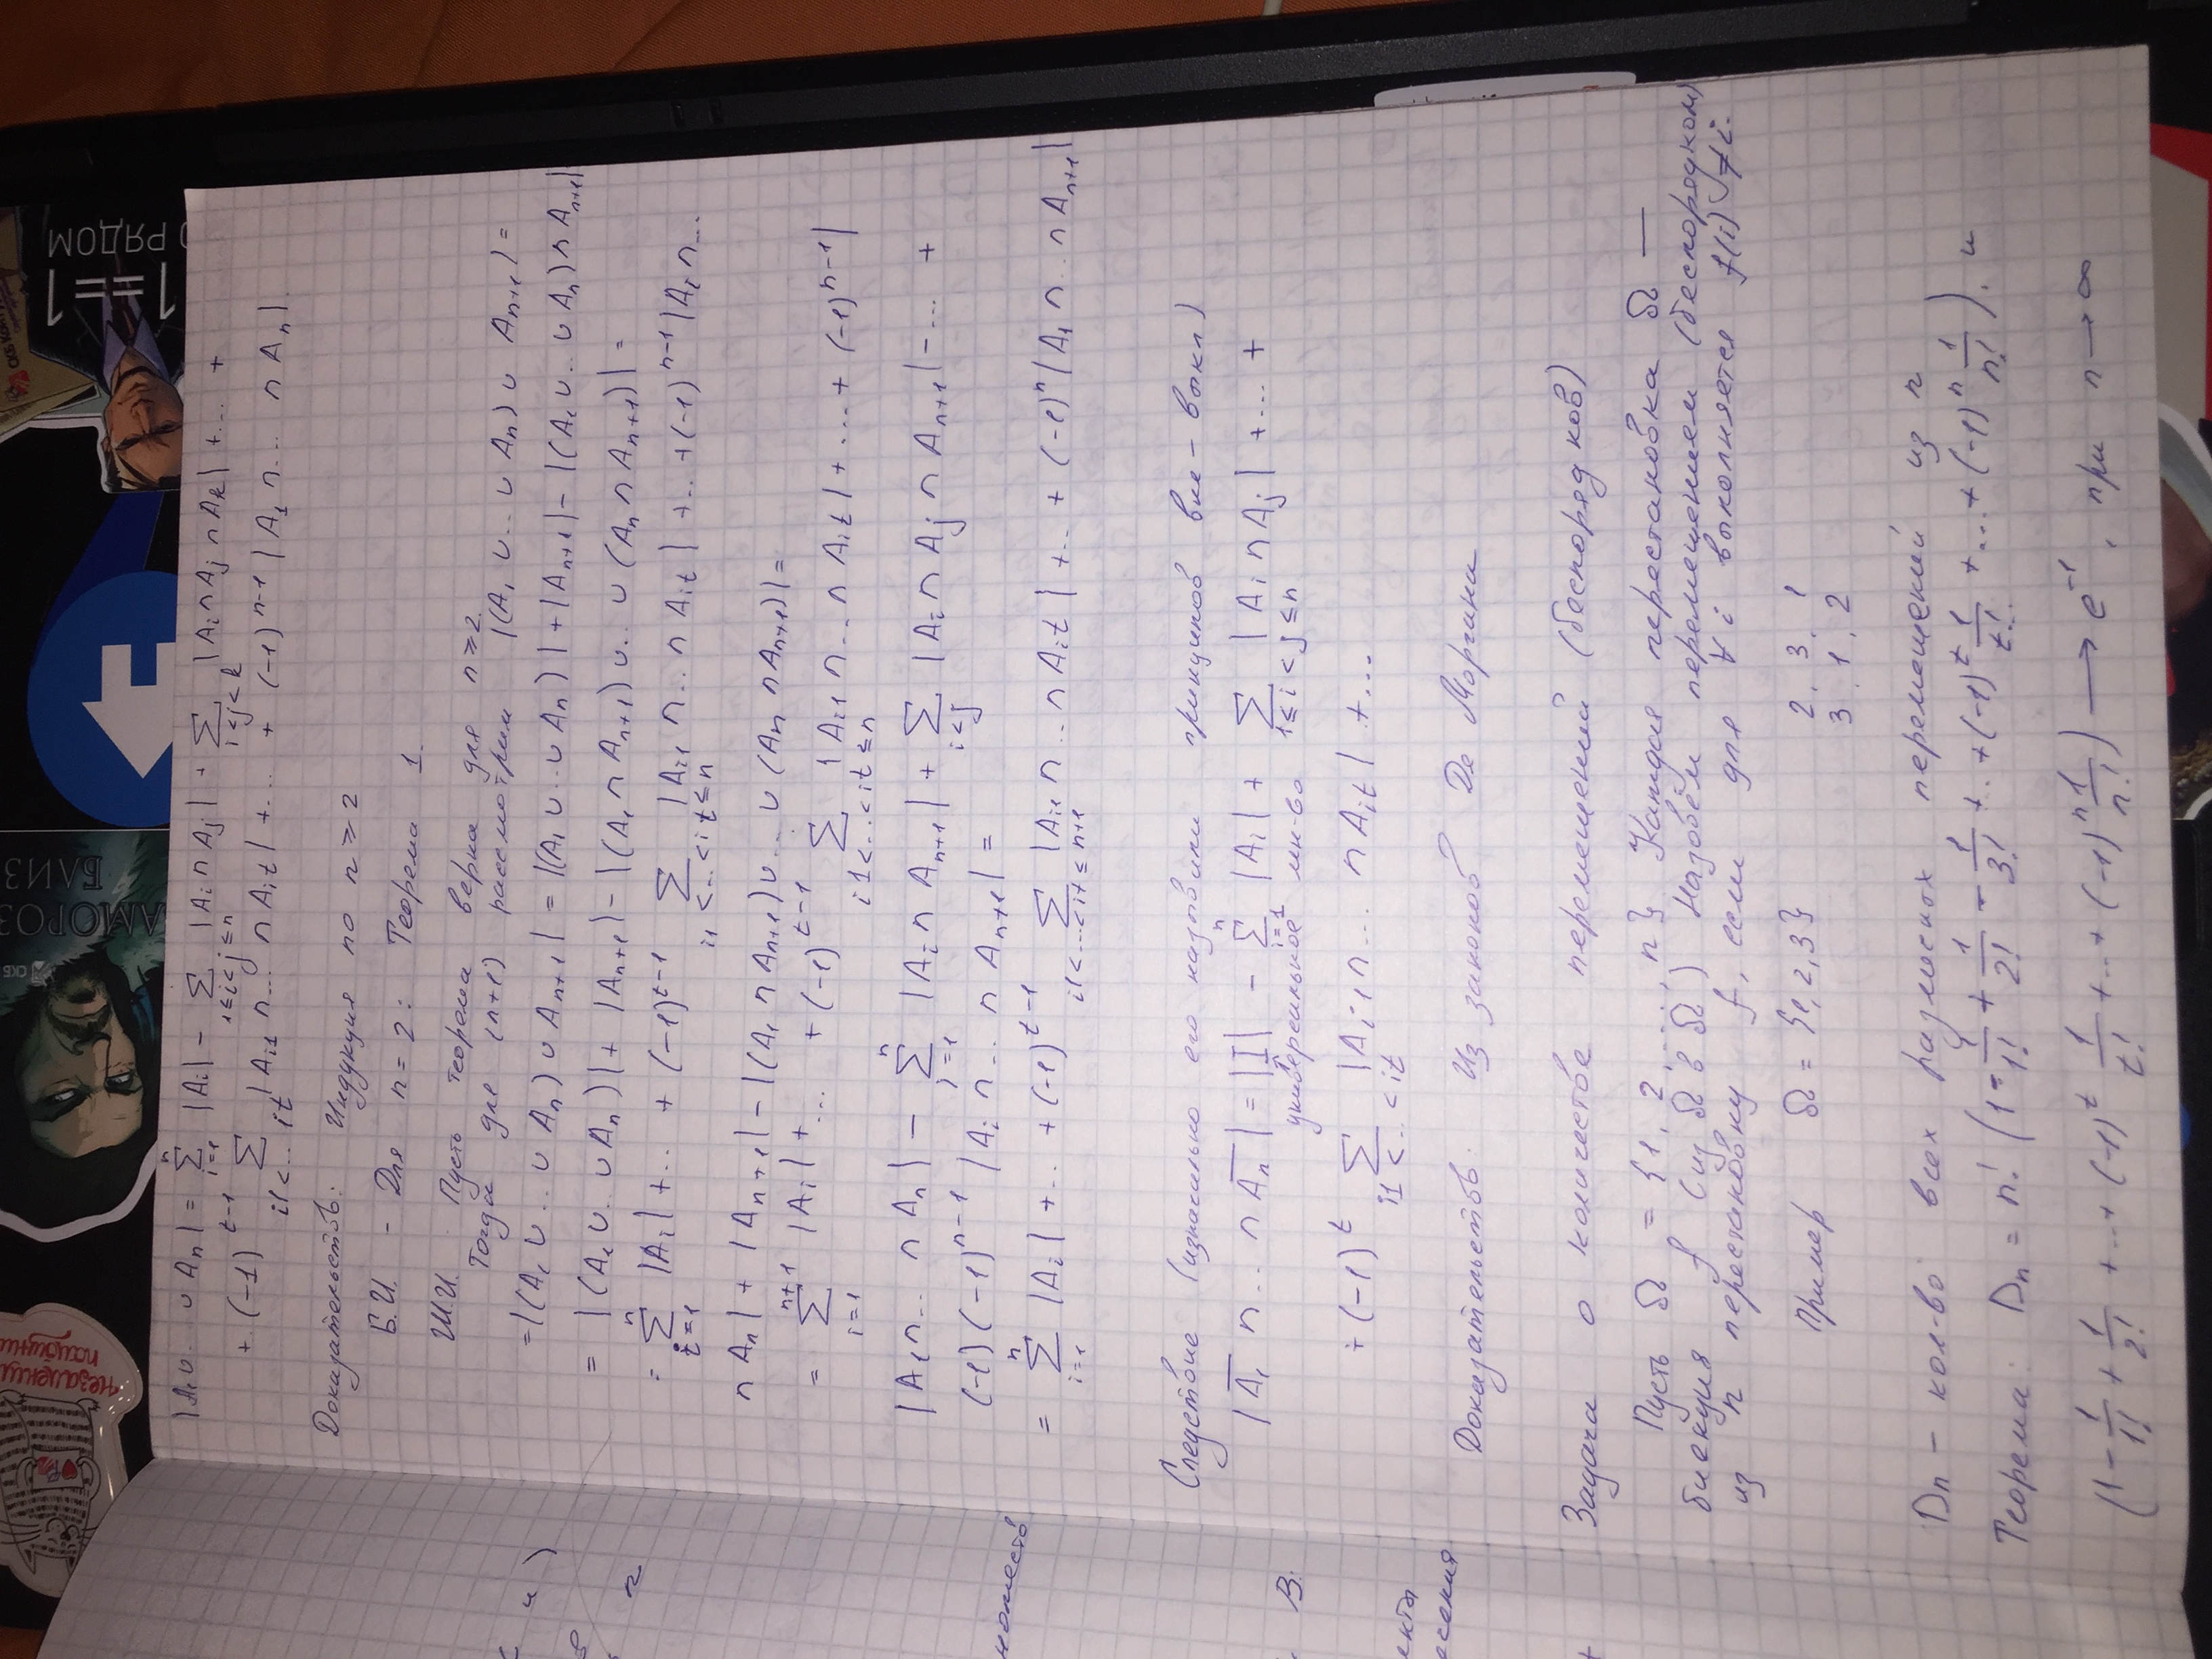 незаменим
помощник
АМОРОЗ
БЛИЗ
СКБ
СКБ Конт
1==1
РЯДОМ
|A₁ ∪ .. ∪ Aₙ| = ∑_{i=1}^{n} |Aᵢ| − ∑_{1≤i<j≤n} |Aᵢ ∩ Aⱼ| + ∑_{i<j<k} |Aᵢ ∩ Aⱼ ∩ Aₖ| + ... +
+ (-1)^{t-1} ∑_{i1<...it} |A_{i1} ∩ ... ∩ A_{it}| + ... + (-1)^{n-1} |A₁ ∩ ... ∩ Aₙ|.
Доказательств: Индукция по n ≥ 2
Б.И. - Для n = 2: Теорема 1.
Ш.И. Пусть теорема верна для n ≥ 2.
Тогда для (n+1) рассмотрим |(A₁ ∪ .. ∪ Aₙ) ∪ A_{n+1}| =
= |(A₁ ∪ .. ∪ Aₙ) ∪ A_{n+1}| = |(A₁ ∪ .. ∪ Aₙ)| + |A_{n+1}| − |(A₁ ∪ .. ∪ Aₙ) ∩ A_{n+1}|
= |(A₁ ∪ .. ∪ Aₙ)| + |A_{n+1}| − |(A₁ ∩ A_{n+1}) ∪ .. ∪ (Aₙ ∩ A_{n+1})| =
= ∑_{i=1}^{n} |Aᵢ| + .. + (-1)^{t-1} ∑_{i1<...<it≤n} |A_{i1} ∩ ... ∩ A_{it}| + .. + (-1)^{n-1} |Aᵢ ∩ ...
∩ Aₙ| + |A_{n+1}| − |(A₁ ∩ A_{n+1}) ∪ ... ∪ (Aₙ ∩ A_{n+1})| =
= ∑_{i=1}^{n+1} |Aᵢ| + ... + (-1)^{t-1} ∑_{i1<...<it≤n} |A_{i1} ∩ ... ∩ A_{it}| + ... + (-1)^{n-1} |
|A₁ ∩ ... ∩ Aₙ| − ∑_{i=1}^{n} |Aᵢ ∩ A_{n+1}| + ∑_{i<j} |Aᵢ ∩ Aⱼ ∩ A_{n+1}| − ... +
(-1)(-1)^{n-1} |Aᵢ ∩ ... ∩ A_{n+1}| =
= ∑_{i=1}^{n} |Aᵢ| + ... + (-1)^{t-1} ∑_{i1<...<it≤n+1} |A_{i1} ∩ .. ∩ A_{it}| + .. + (-1)ⁿ |A₁ ∩ .. ∩ A_{n+1}|
Следствие (изначально его называли принципов вкл - выкл)
|A̅₁ ∩ .. ∩ A̅ₙ| = |I| − ∑_{i=1}^{n} |Aᵢ| + ∑_{1≤i<j≤n} |Aᵢ ∩ Aⱼ| + ... +
универсальное мн-во
+ (-1)^t ∑_{i1<...<it} |A_{i1} ∩ ... ∩ A_{it}| + ...
Доказательств: Из законов Де Моргана
Задача о количестве перемещений (беспорядков)
Пусть Ω = {1, 2, ..., n} Каждая перестановка Ω —
биекция f (из Ω в Ω) Назовём перемещением (беспорядком)
из n перестановку f, если для ∀ i выполняется f(i) ≠ i.
Пример Ω = {1, 2, 3} 2, 3, 1
3, 1, 2
Dₙ - кол-во всех различных перемещений из n
Теорема: Dₙ = n! (1 - 1/1! + 1/2! - 1/3! + .. + (-1)^t 1/t! + ... + (-1)ⁿ 1/n!), и
(1 - 1/1! + 1/2! + ... + (-1)^t 1/t! + ... + (-1)ⁿ 1/n!) → e⁻¹, при n → ∞